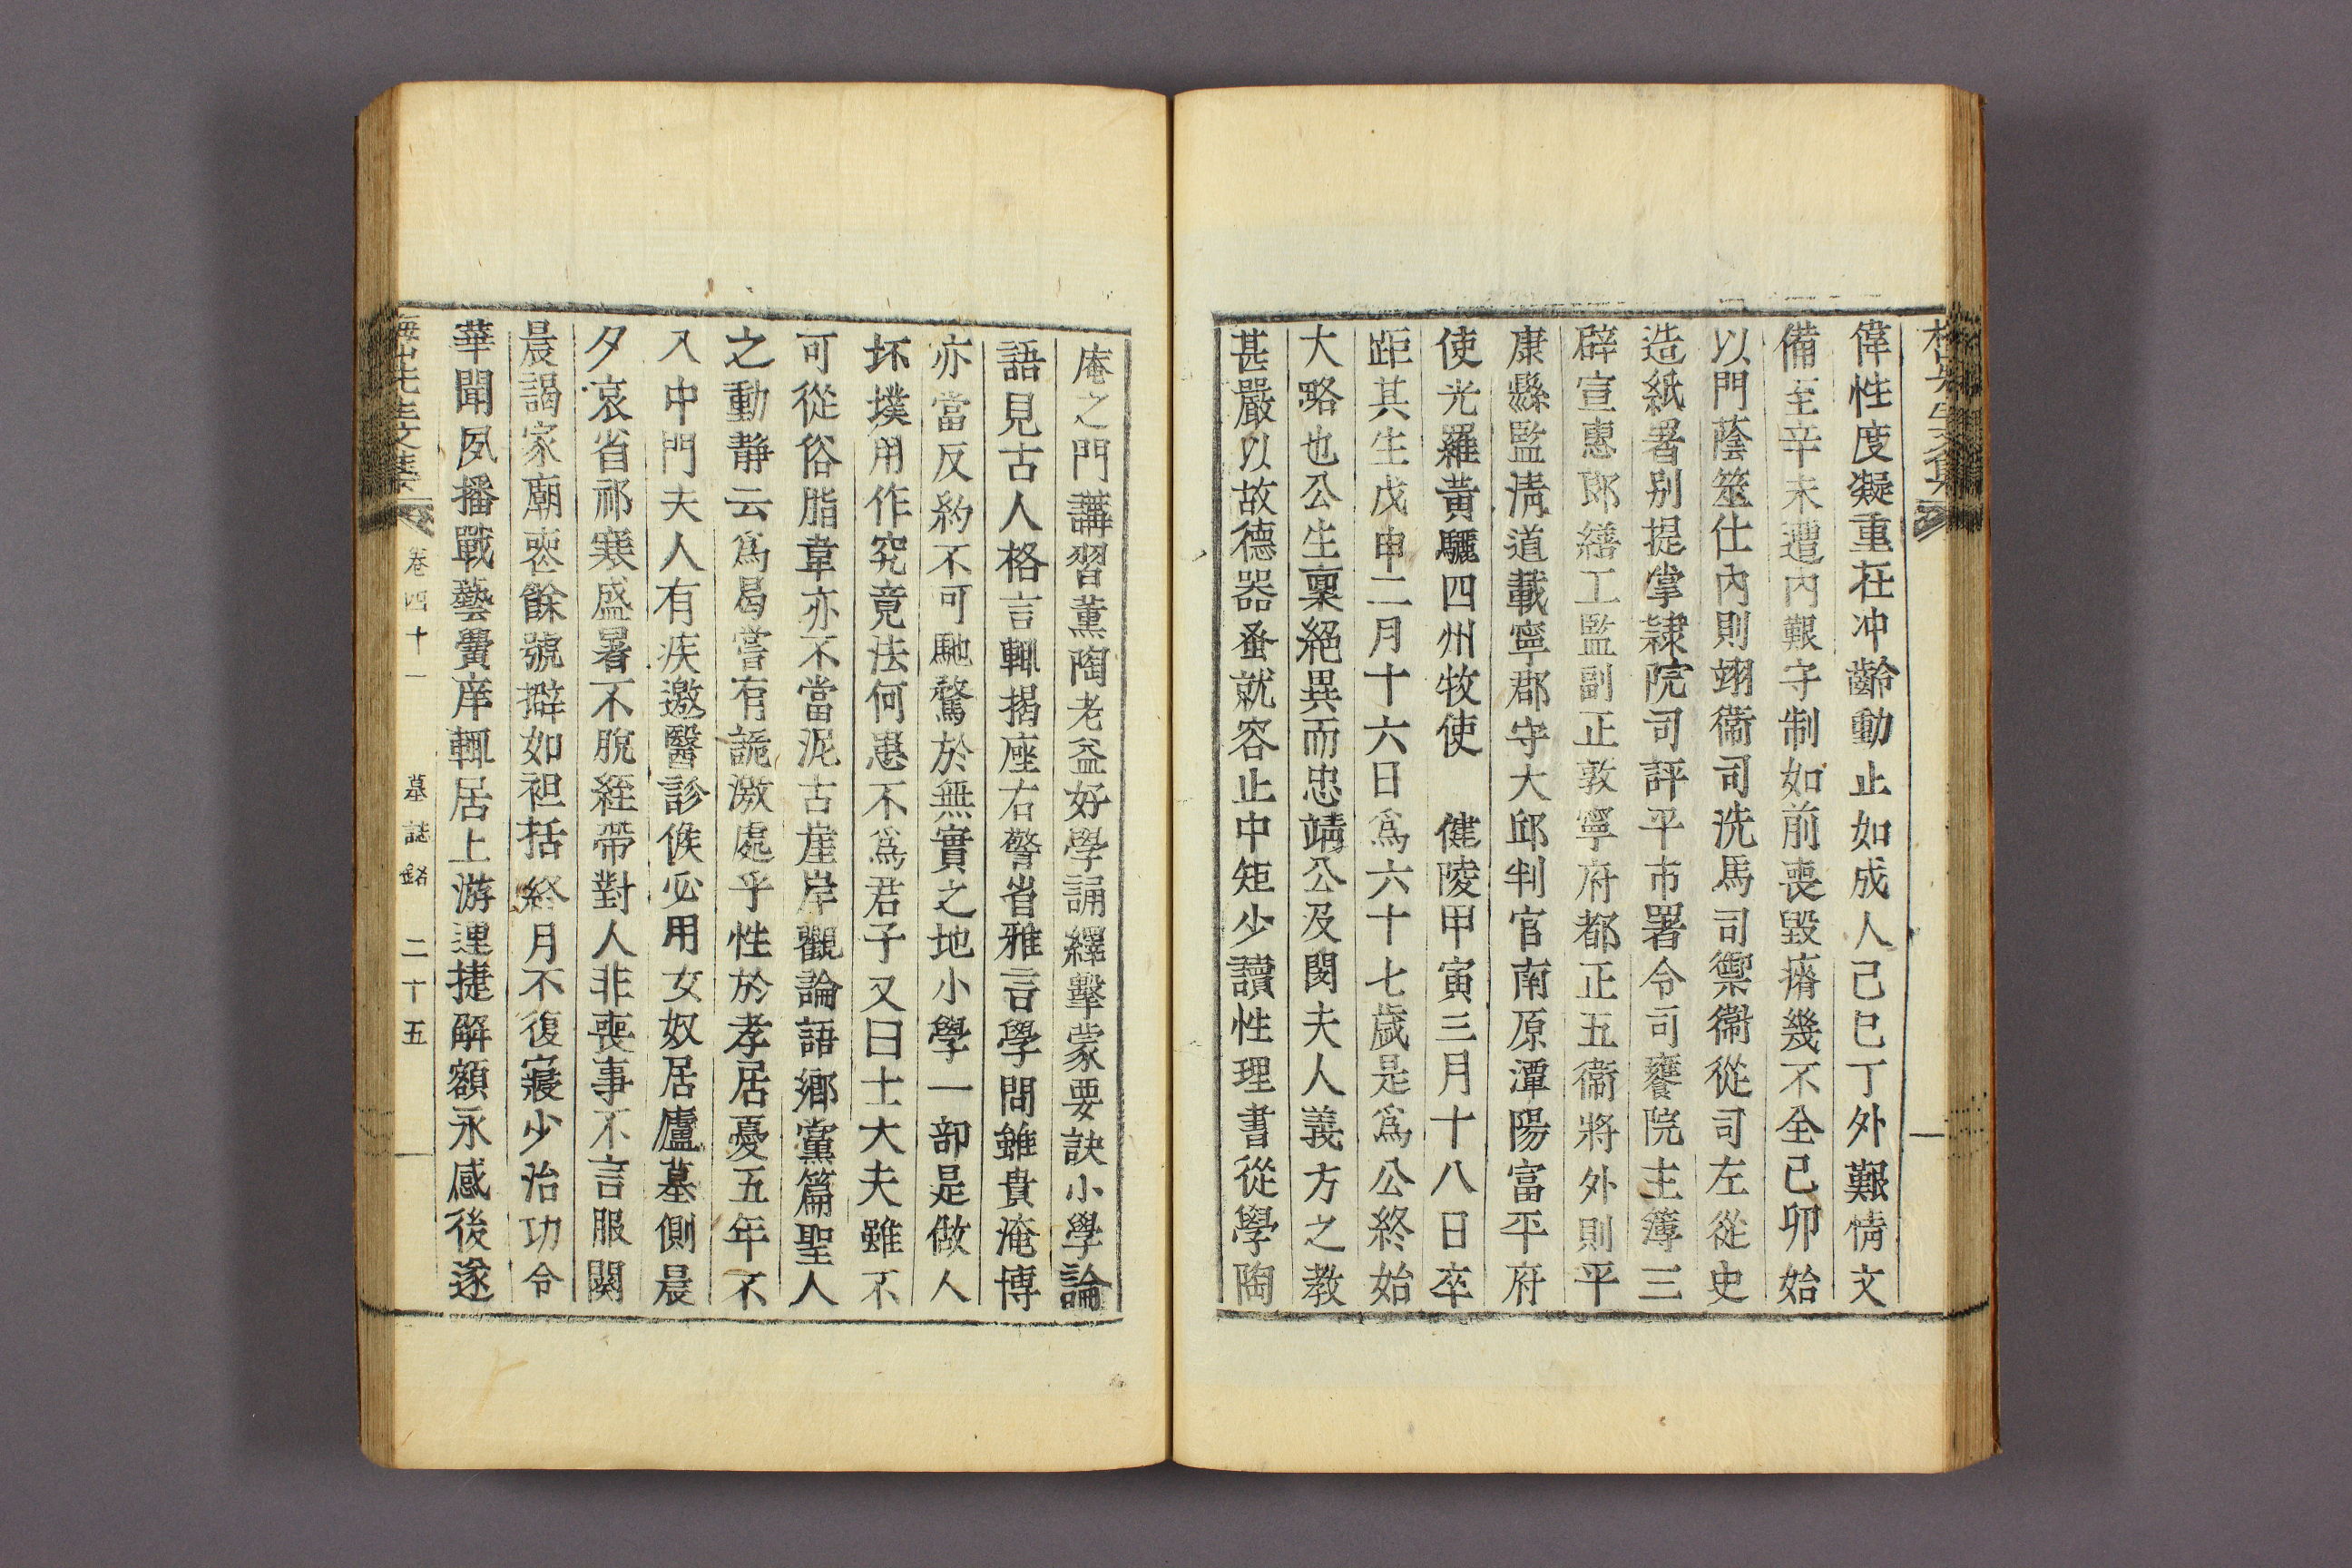 偉性度凝重在冲齡動止如成人己巳丁外艱情文
備至辛未遭內艱守制如前喪毀瘠幾不全己卯始
以門蔭筮仕內則翊衛司洗馬司禦衛從司左從史
造紙署别提掌隷院司評平市署令司饔院主簿三
辟宣惠郞繕工監副正敦寧府都正五衛將外則平
康縣監淸道載寧郡守大邱判官南原潭陽富平府
使光羅黃驪四州牧使 健陵甲寅三月十八日卒
距其生戊申二月十六日爲六十七歲是爲公終始
大略也公生稟絕異而忠靖公及閔夫人義方之教
甚嚴以故德器蚤就容止中矩少讀性理書從學陶
庵之門講習薰陶老益好學誦繹擊蒙要訣小學論
語見古人格言輒揭座右警省雅言學問雖貴淹博
亦當反約不可馳騖於無實之地小學一部是做人
坏墣用作究竟法何患不爲君子又曰士大夫雖不
可從俗脂韋亦不當泥古崖岸觀論語鄕黨篇聖人
之動靜云爲曷嘗有詭激處乎性於孝居憂五年不
入中門夫人有疾邀醫診候必用女奴居廬墓側晨
夕哀省祁寒盛暑不脫絰帶對人非喪事不言服闋
晨謁家廟喪餘號擗如袒括終月不復寢少治功令
華聞夙播戰藝黌庠輒居上游逮捷解額永感後遂
梅山先生文集 卷四十一 墓誌銘 二十五